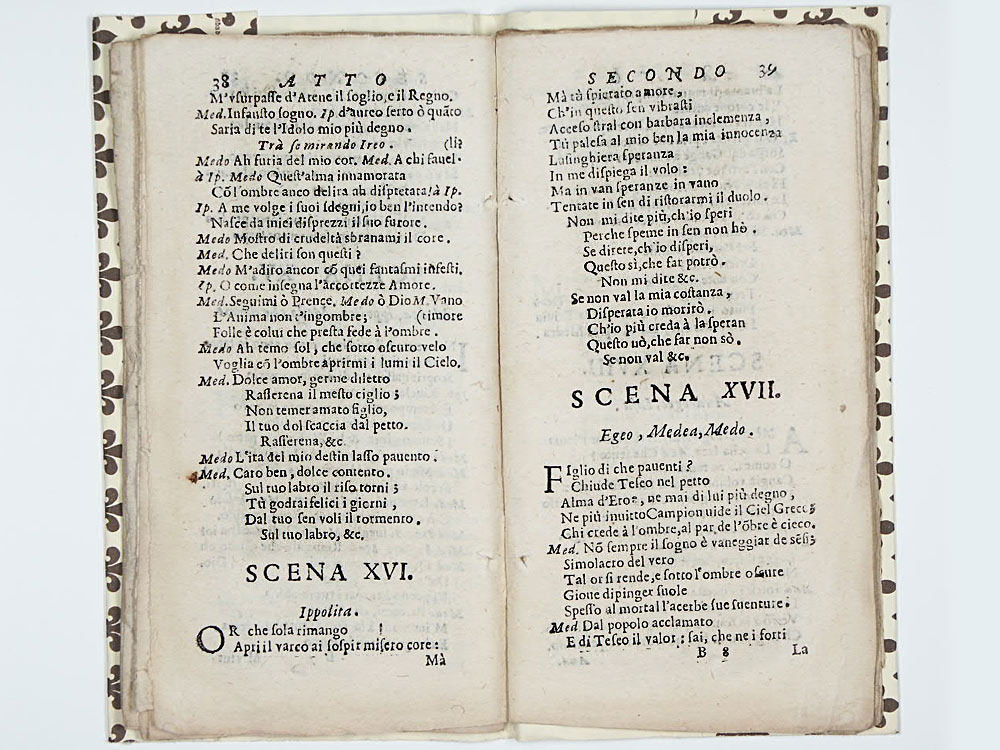 38 ATTO
M'vsurpasse d'Atene il soglio, e il Regno.
Med. Infausto sogno. Ip. d'aureo serto ò quãto
Saria di te l'Idolo mio più degno.
Trà se mirando Ireo. (li?
Medo Ah furia del mio cor. Med. A chi fauel-
à Ip. Medo Quest'alma innamorata
Cõ l'ombre anco delira ah dispietata! à Ip.
Ip. A me volge i suoi sdegni, io ben l'intendo?
Nasce da miei disprezzi il suo furore.
Medo Mostro di crudeltà sbranami il core.
Med. Che deliri son questi?
Medo M'adiro ancor cõ quei fantasmi infesti.
Ip. O come insegna l'accortezze Amore.
Med. Seguimi ò Prence. Medo ò Dio M. Vano
L'Anima non t'ingombre; (timore
Folle è colui che presta fede à l'ombre.
Medo Ah temo sol, che sotto oscuro velo
Voglia cõ l'ombre aprirmi i lumi il Cielo.
Med. Dolce amor, germe diletto
Rasserena il mesto ciglio;
Non temer amato figlio,
Il tuo dol scaccia dal petto.
Rasserena, &c.
Medo L'ira del mio destin lasso pauento.
Med. Caro ben, dolce contento.
Sul tuo labro il riso torni;
Tù godrai felici i giorni,
Dal tuo sen voli il tormento.
Sul tuo labro, &c.
SCENA XVI.
Ippolita.
OR che sola rimango
Apri il varco ai sospir misero core:
Mà
SECONDO 39
Mà tù spietato amore,
Ch'in questo sen vibrasti
Acceso stral con barbara inclemenza,
Tù palesa al mio ben la mia innocenza
Lusinghiera speranza
In me dispiega il volo:
Ma in van speranze in vano
Tentate in sen di ristorarmi il duolo.
Non mi dite più, ch'io speri
Perche speme in sen non hò.
Se direte, ch'io disperi,
Questo sì, che far potrò.
Non mi dite &c.
Se non val la mia costanza,
Disperata io morirò.
Ch'io più creda à la speran
Questo nò, che far non sò.
Se non val &c.
SCENA XVII.
Egeo, Medea, Medo.
FIglio di che pauenti?
Chiude Teseo nel petto
Alma d'Eroe, ne mai di lui più degno,
Ne più inuitto Campion uide il Ciel Greco;
Chi crede à l'ombre, al par de l'õbre è cieco.
Med. Nõ sempre il sogno è vaneggiar de sẽsi;
Simolacro del vero
Tal or si rende, e sotto l'ombre oscure
Gioue dipinger suole
Spesso al mortal l'acerbe sue suenture.
Med Dal popolo acclamato
E di Teseo il valor: sai, che ne i forti
B 8 La